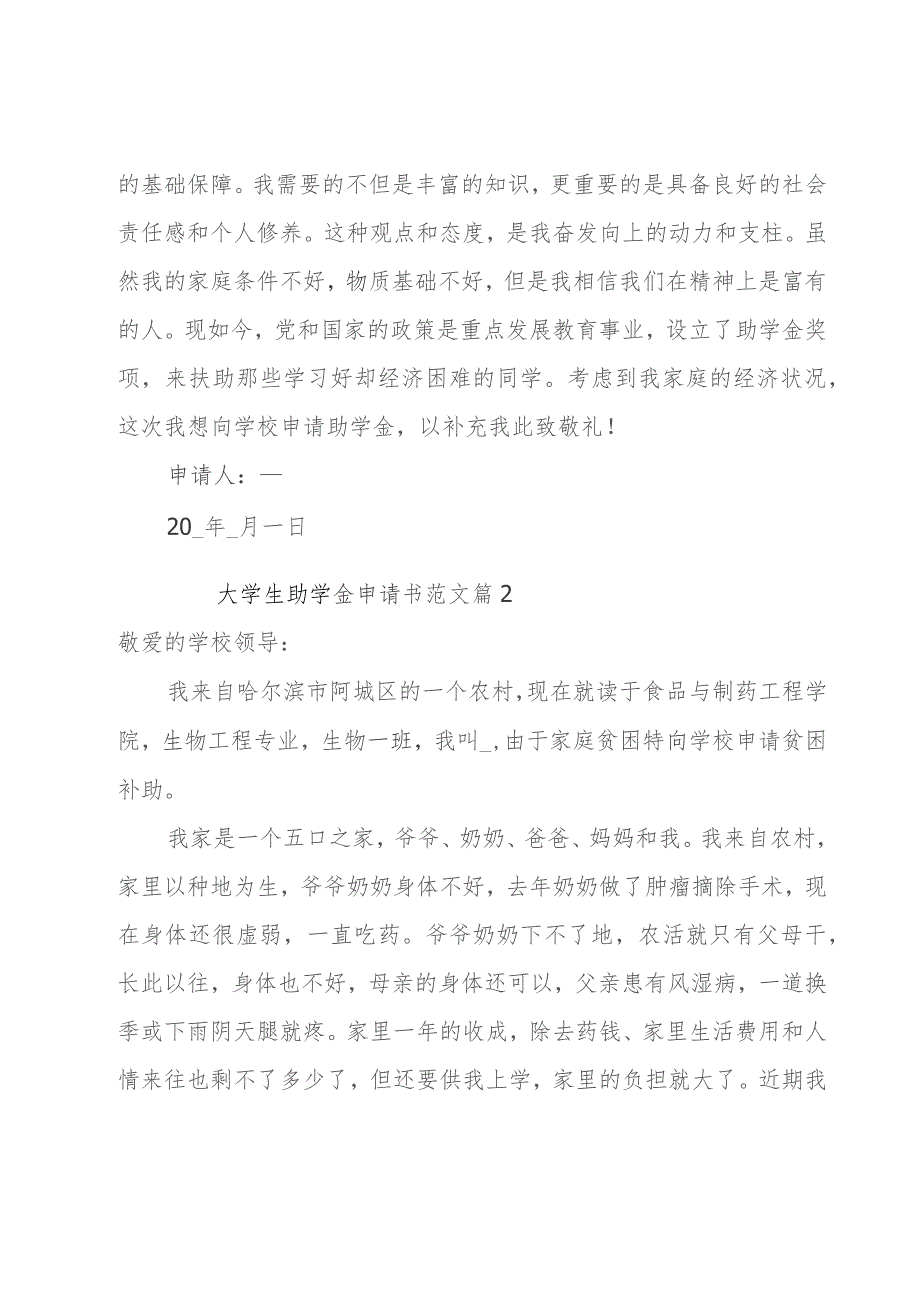 的基础保障。我需要的不但是丰富的知识，更重要的是具备良好的社会
责任感和个人修养。这种观点和态度，是我奋发向上的动力和支柱。虽
然我的家庭条件不好，物质基础不好，但是我相信我们在精神上是富有
的人。现如今，党和国家的政策是重点发展教育事业，设立了助学金奖
项，来扶助那些学习好却经济困难的同学。考虑到我家庭的经济状况，
这次我想向学校申请助学金，以补充我此致敬礼！
申请人：—
20_年_月一日
大学生助学金申请书范文篇2
敬爱的学校领导：
我来自哈尔滨市阿城区的一个农村,现在就读于食品与制药工程学
院，生物工程专业，生物一班，我叫_,由于家庭贫困特向学校申请贫困
补助。
我家是一个五口之家，爷爷、奶奶、爸爸、妈妈和我。我来自农村，
家里以种地为生，爷爷奶奶身体不好，去年奶奶做了肿瘤摘除手术，现
在身体还很虚弱，一直吃药。爷爷奶奶下不了地，农活就只有父母干，
长此以往，身体也不好，母亲的身体还可以，父亲患有风湿病，一道换
季或下雨阴天腿就疼。家里一年的收成，除去药钱、家里生活费用和人
情来往也剩不了多少了，但还要供我上学，家里的负担就大了。近期我